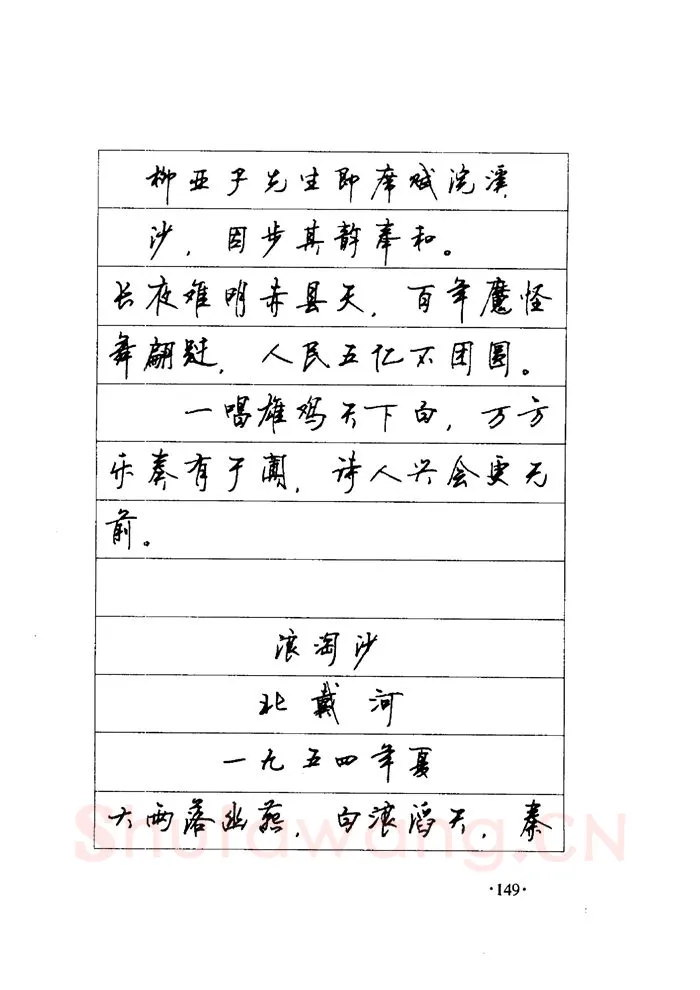 柳亚子先生即席赋浣溪
沙，因步其韵奉和。
长夜难明赤县天，百年魔怪
舞翩跹，人民五亿不团圆。
一唱雄鸡天下白，万方
乐奏有于阗，诗人兴会更无
前。
浪淘沙
北戴河
一九五四年夏
大雨落幽燕，白浪滔天，秦
Shufawang.CN
·149·